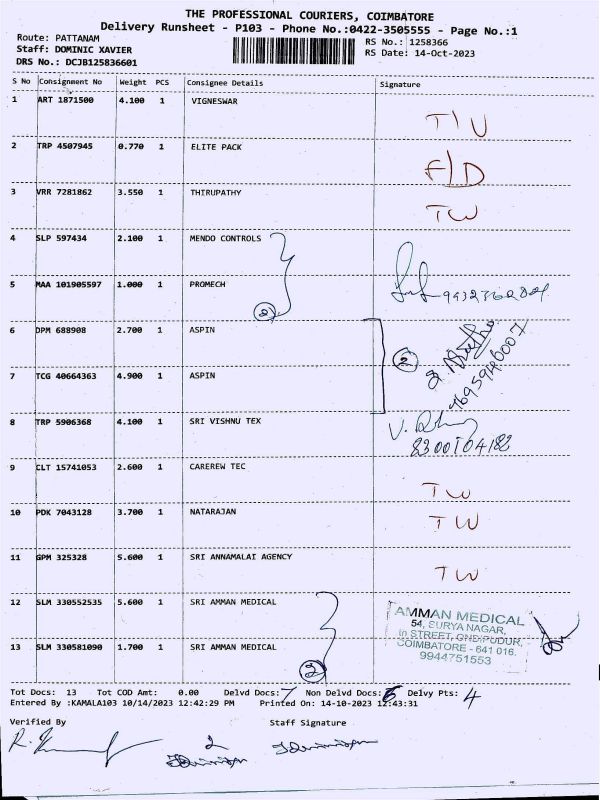 THE PROFESSIONAL COURIERS, COIMBATORE
Delivery Runsheet - P103 - Phone No.:0422-3505555 - Page No.:1
Route: PATTANAM RS No.: 1258366
Staff: DOMINIC XAVIER RS Date: 14-Oct-2023
DRS No.: DCJB125836601
S No Consignment No Weight PCS Consignee Details Signature
1 ART 1871500 4.100 1 VIGNESWAR
TW
2 TRP 4507945 0.770 1 ELITE PACK
F/D
3 VRR 7281862 3.550 1 THIRUPATHY
TW
4 SLP 597434 2.100 1 MENDO CONTROLS
5 MAA 101905597 1.000 1 PROMECH
2
6 DPM 688908 2.700 1 ASPIN
2
7 TCG 40664363 4.900 1 ASPIN
8 TRP 5906368 4.100 1 SRI VISHNU TEX
8300104182
9 CLT 15741053 2.600 1 CAREREW TEC
TW
10 PDK 7043128 3.700 1 NATARAJAN
TW
11 GPM 325328 5.600 1 SRI ANNAMALAI AGENCY
TW
12 SLM 330552535 5.600 1 SRI AMMAN MEDICAL
AMMAN MEDICAL
54, SURYA NAGAR,
STREET, ONDIPUDUR,
COIMBATORE - 641 016.
9944751553
13 SLM 330581090 1.700 1 SRI AMMAN MEDICAL
2
Tot Docs: 13 Tot COD Amt: 0.00 Delvd Docs: 7 Non Delvd Docs: 6 Delvy Pts: 4
Entered By :KAMALA103 10/14/2023 12:42:29 PM Printed On: 14-10-2023 12:43:31
Verified By Staff Signature
2